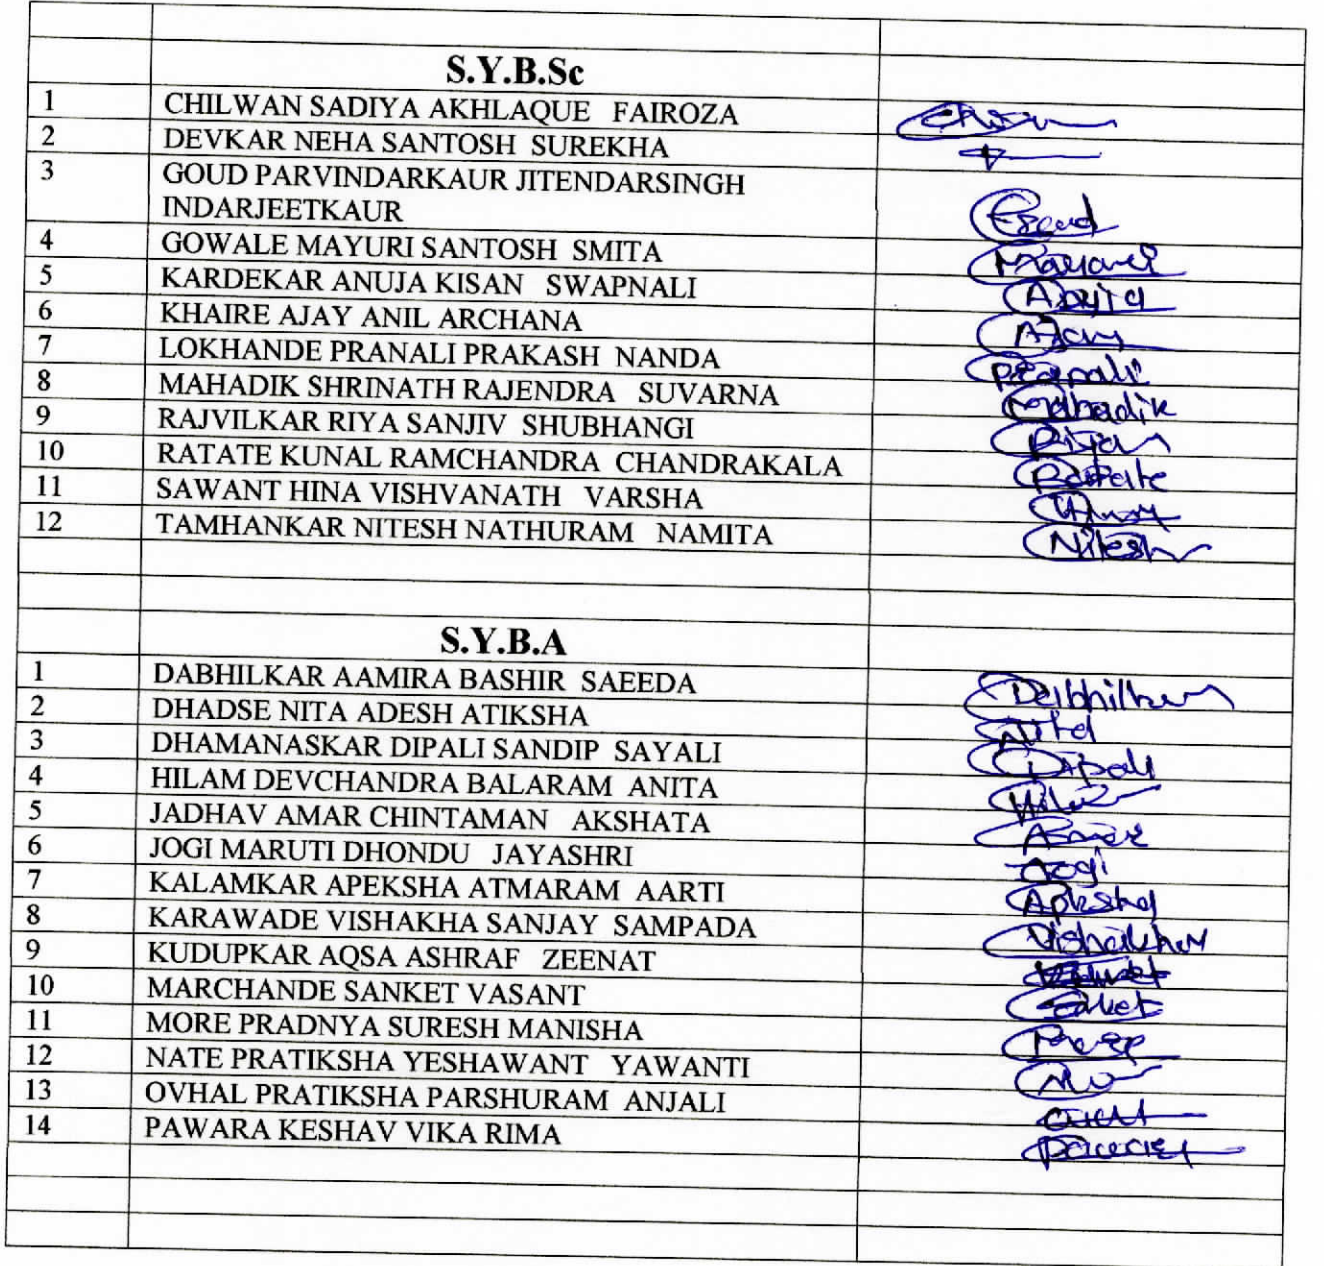 S.Y.B.Sc
1 CHILWAN SADIYA AKHLAQUE FAIROZA
2 DEVKAR NEHA SANTOSH SUREKHA
3 GOUD PARVINDARKAUR JITENDARSINGH
INDARJEETKAUR Goud
4 GOWALE MAYURI SANTOSH SMITA Mayuri
5 KARDEKAR ANUJA KISAN SWAPNALI Anuja
6 KHAIRE AJAY ANIL ARCHANA Ajay
7 LOKHANDE PRANALI PRAKASH NANDA Pranali
8 MAHADIK SHRINATH RAJENDRA SUVARNA Mahadik
9 RAJVILKAR RIYA SANJIV SHUBHANGI Riya
10 RATATE KUNAL RAMCHANDRA CHANDRAKALA Ratate
11 SAWANT HINA VISHVANATH VARSHA
12 TAMHANKAR NITESH NATHURAM NAMITA Nitesh
S.Y.B.A
1 DABHILKAR AAMIRA BASHIR SAEEDA Dabhilkar
2 DHADSE NITA ADESH ATIKSHA Nita
3 DHAMANASKAR DIPALI SANDIP SAYALI Dipali
4 HILAM DEVCHANDRA BALARAM ANITA
5 JADHAV AMAR CHINTAMAN AKSHATA Amar
6 JOGI MARUTI DHONDU JAYASHRI Jogi
7 KALAMKAR APEKSHA ATMARAM AARTI Apksha
8 KARAWADE VISHAKHA SANJAY SAMPADA Vishakha
9 KUDUPKAR AQSA ASHRAF ZEENAT
10 MARCHANDE SANKET VASANT Sanket
11 MORE PRADNYA SURESH MANISHA More
12 NATE PRATIKSHA YESHAWANT YAWANTI
13 OVHAL PRATIKSHA PARSHURAM ANJALI
14 PAWARA KESHAV VIKA RIMA Pawara